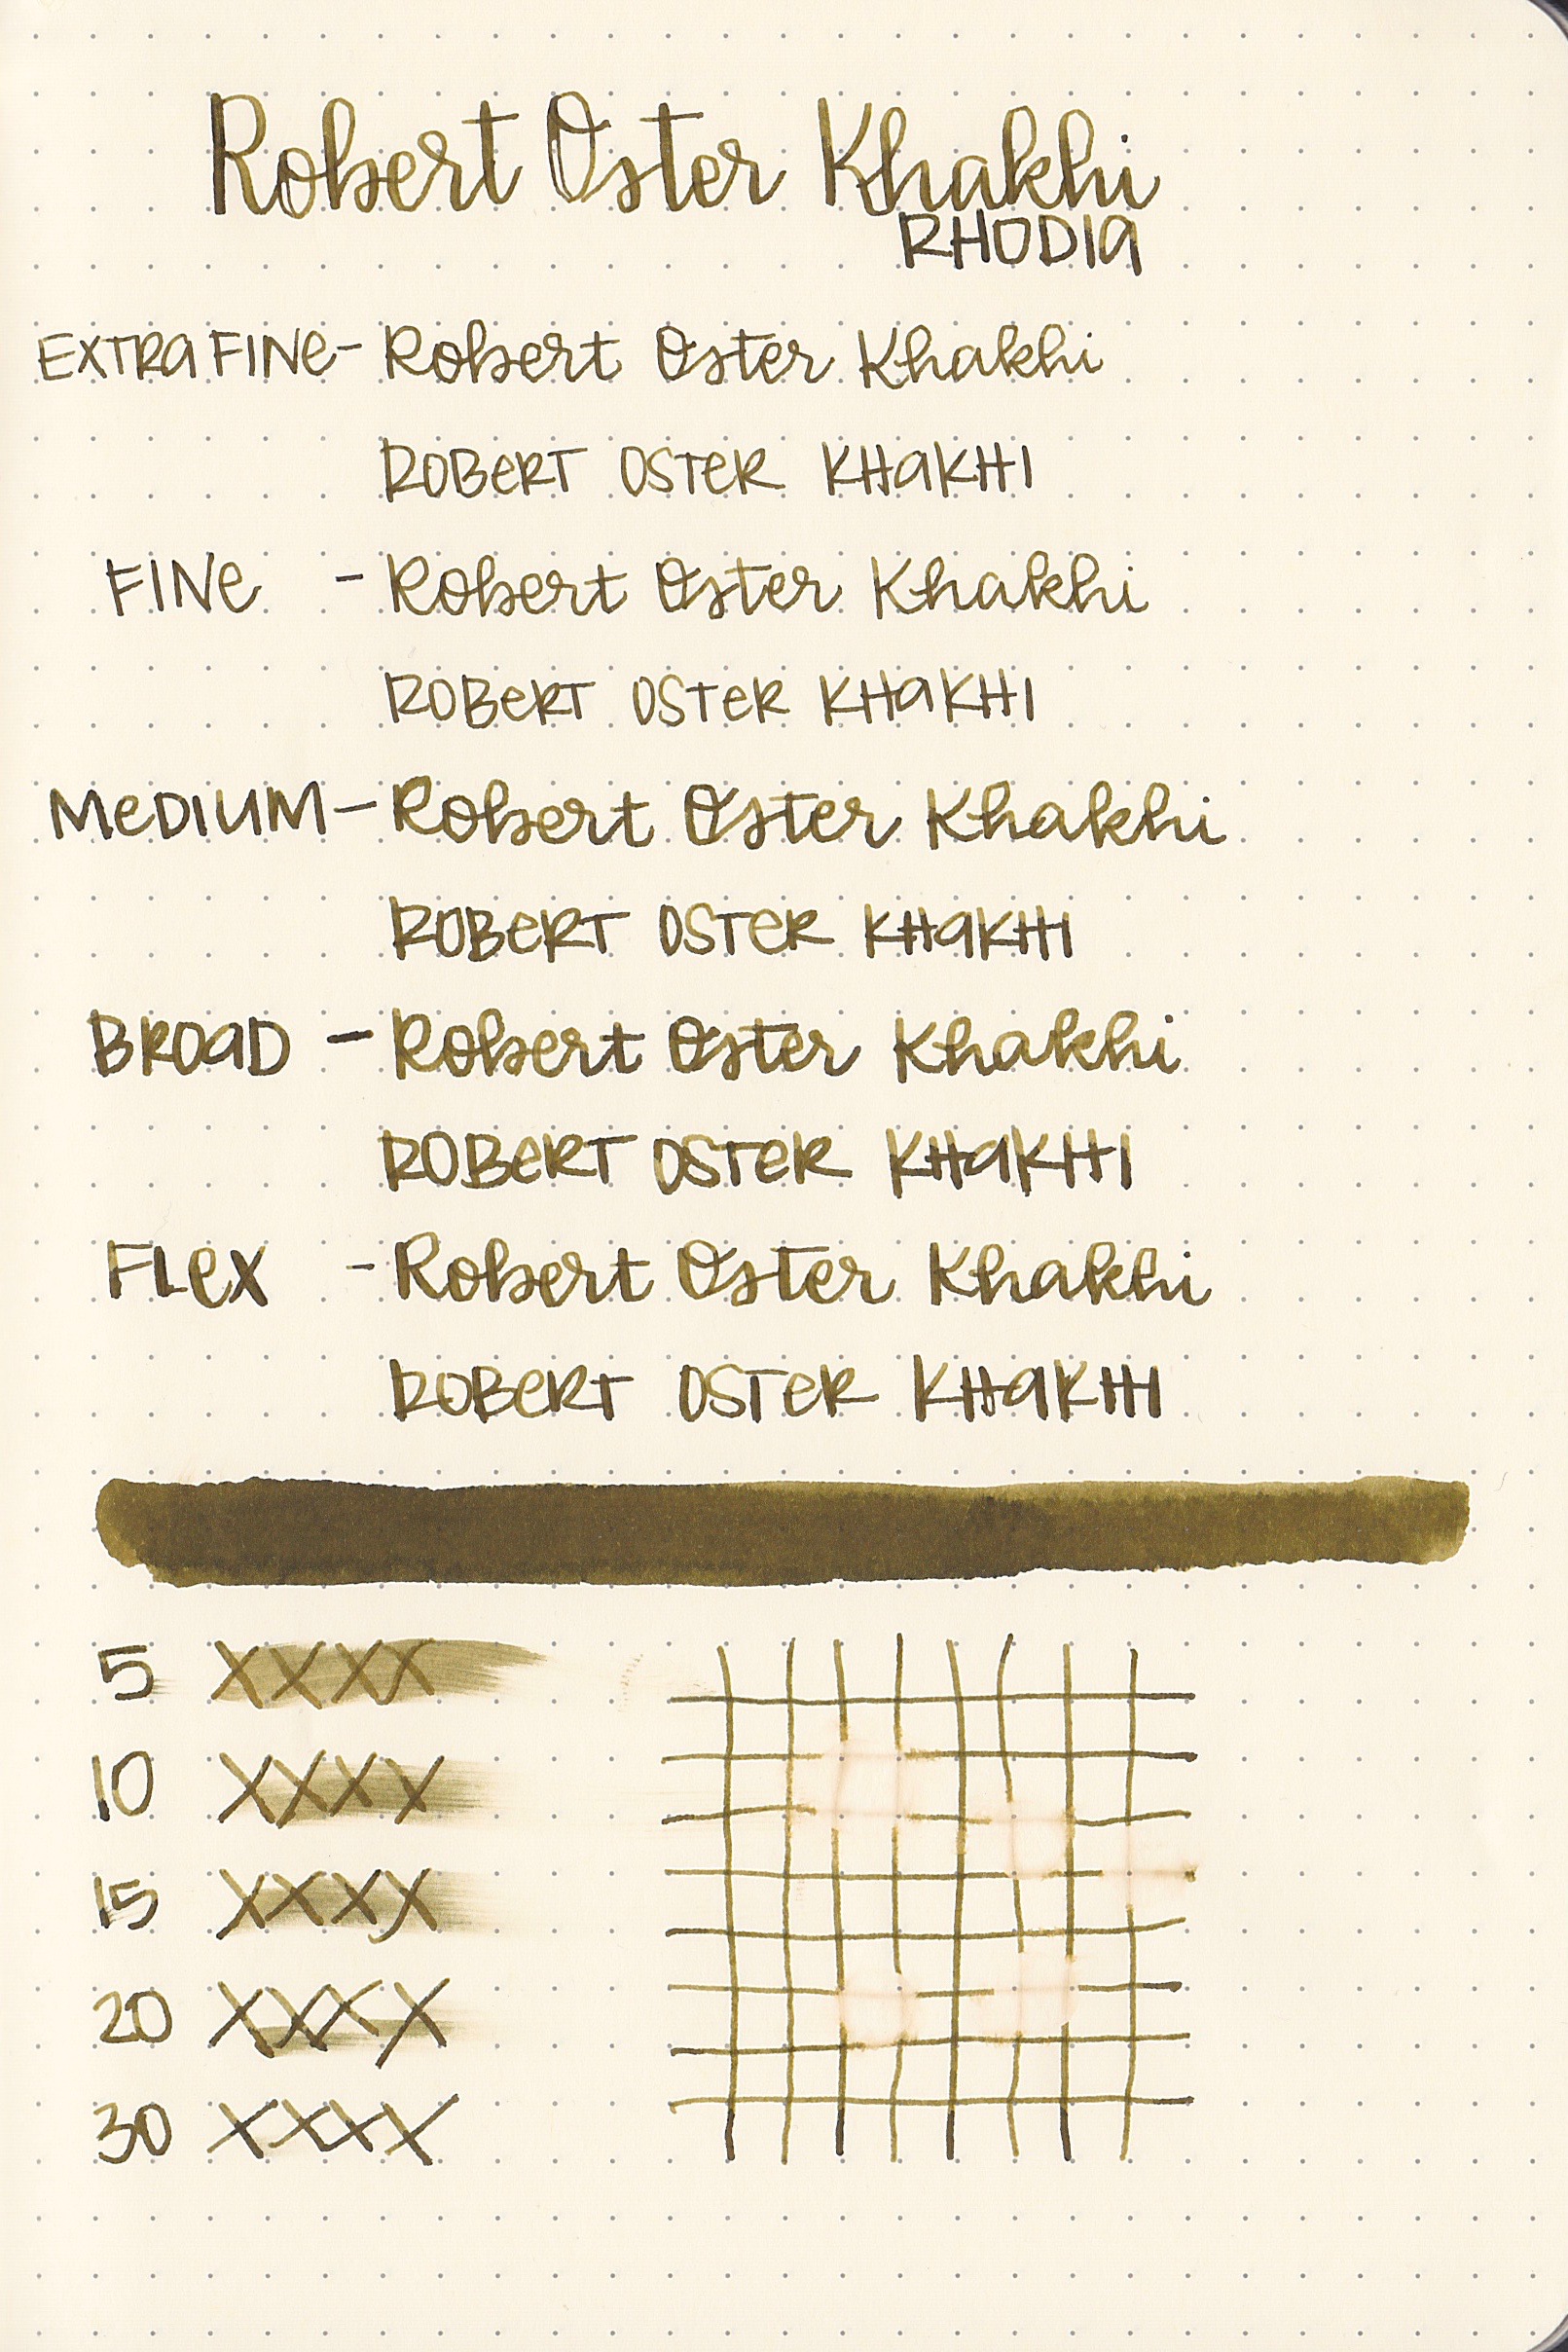 Robert Oster Khakhi
RHODIA
EXTRA FINE - Robert Oster Khakhi
ROBERT OSTER KHAKHI
FINE - Robert Oster Khakhi
ROBERT OSTER KHAKHI
MEDIUM - Robert Oster Khakhi
ROBERT OSTER KHAKHI
BROAD - Robert Oster Khakhi
ROBERT OSTER KHAKHI
FLEX - Robert Oster Khakhi
ROBERT OSTER KHAKHI
5 XXXX
10 XXXX
15 XXXX
20 XXXX
30 XXXX